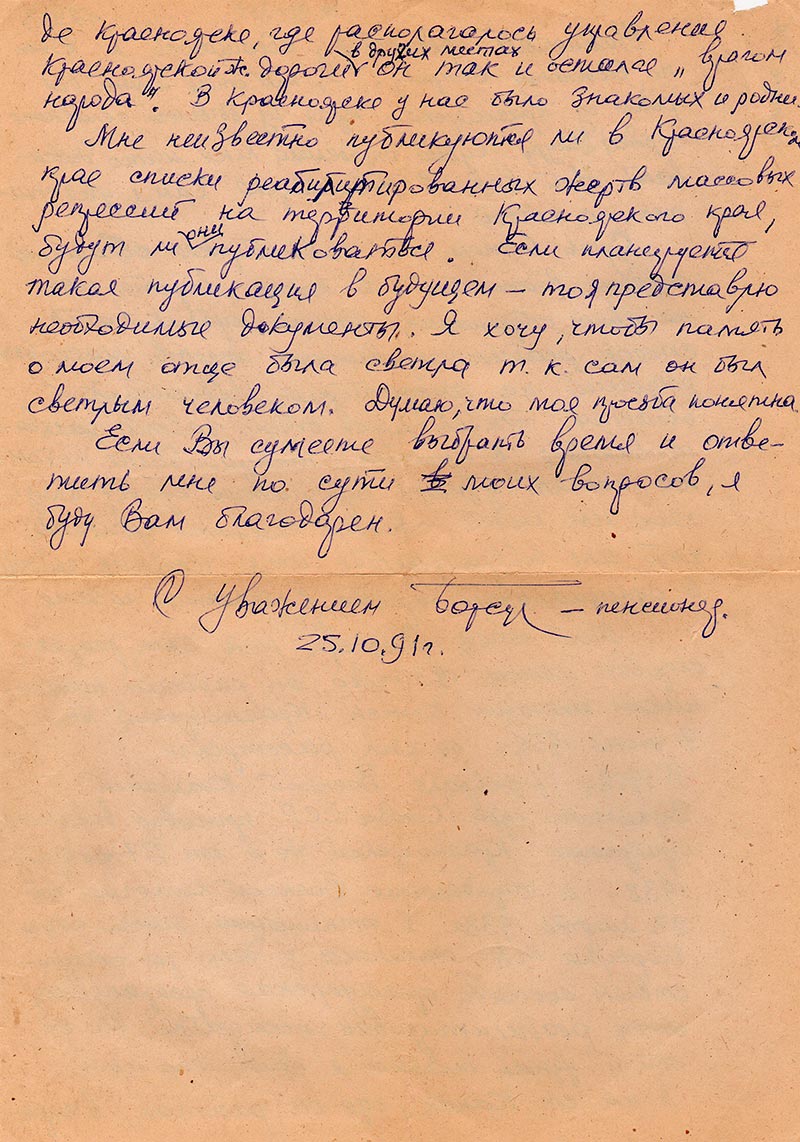 де Красноярске, где располагалось управление
Красноярской ж. дороги в других местах он так и остался „врагом
народа". В Красноярске у нас было знакомых и родни.
Мне неизвестно публикуются ли в Красноярском
крае списки реабилитированных жертв массовых
репрессий на территории Красноярского края,
будут ли они публиковаться. Если планируется
такая публикация в будущем – то я представлю
необходимые документы. Я хочу, чтобы память
о моем отце была светла т.к. сам он был
светлым человеком. Думаю, что моя просьба понятна.
Если Вы сумеете выбрать время и отве-
тить мне по сути моих вопросов, я
буду Вам благодарен.
С уважением – пенсионер.
25.10.91г.